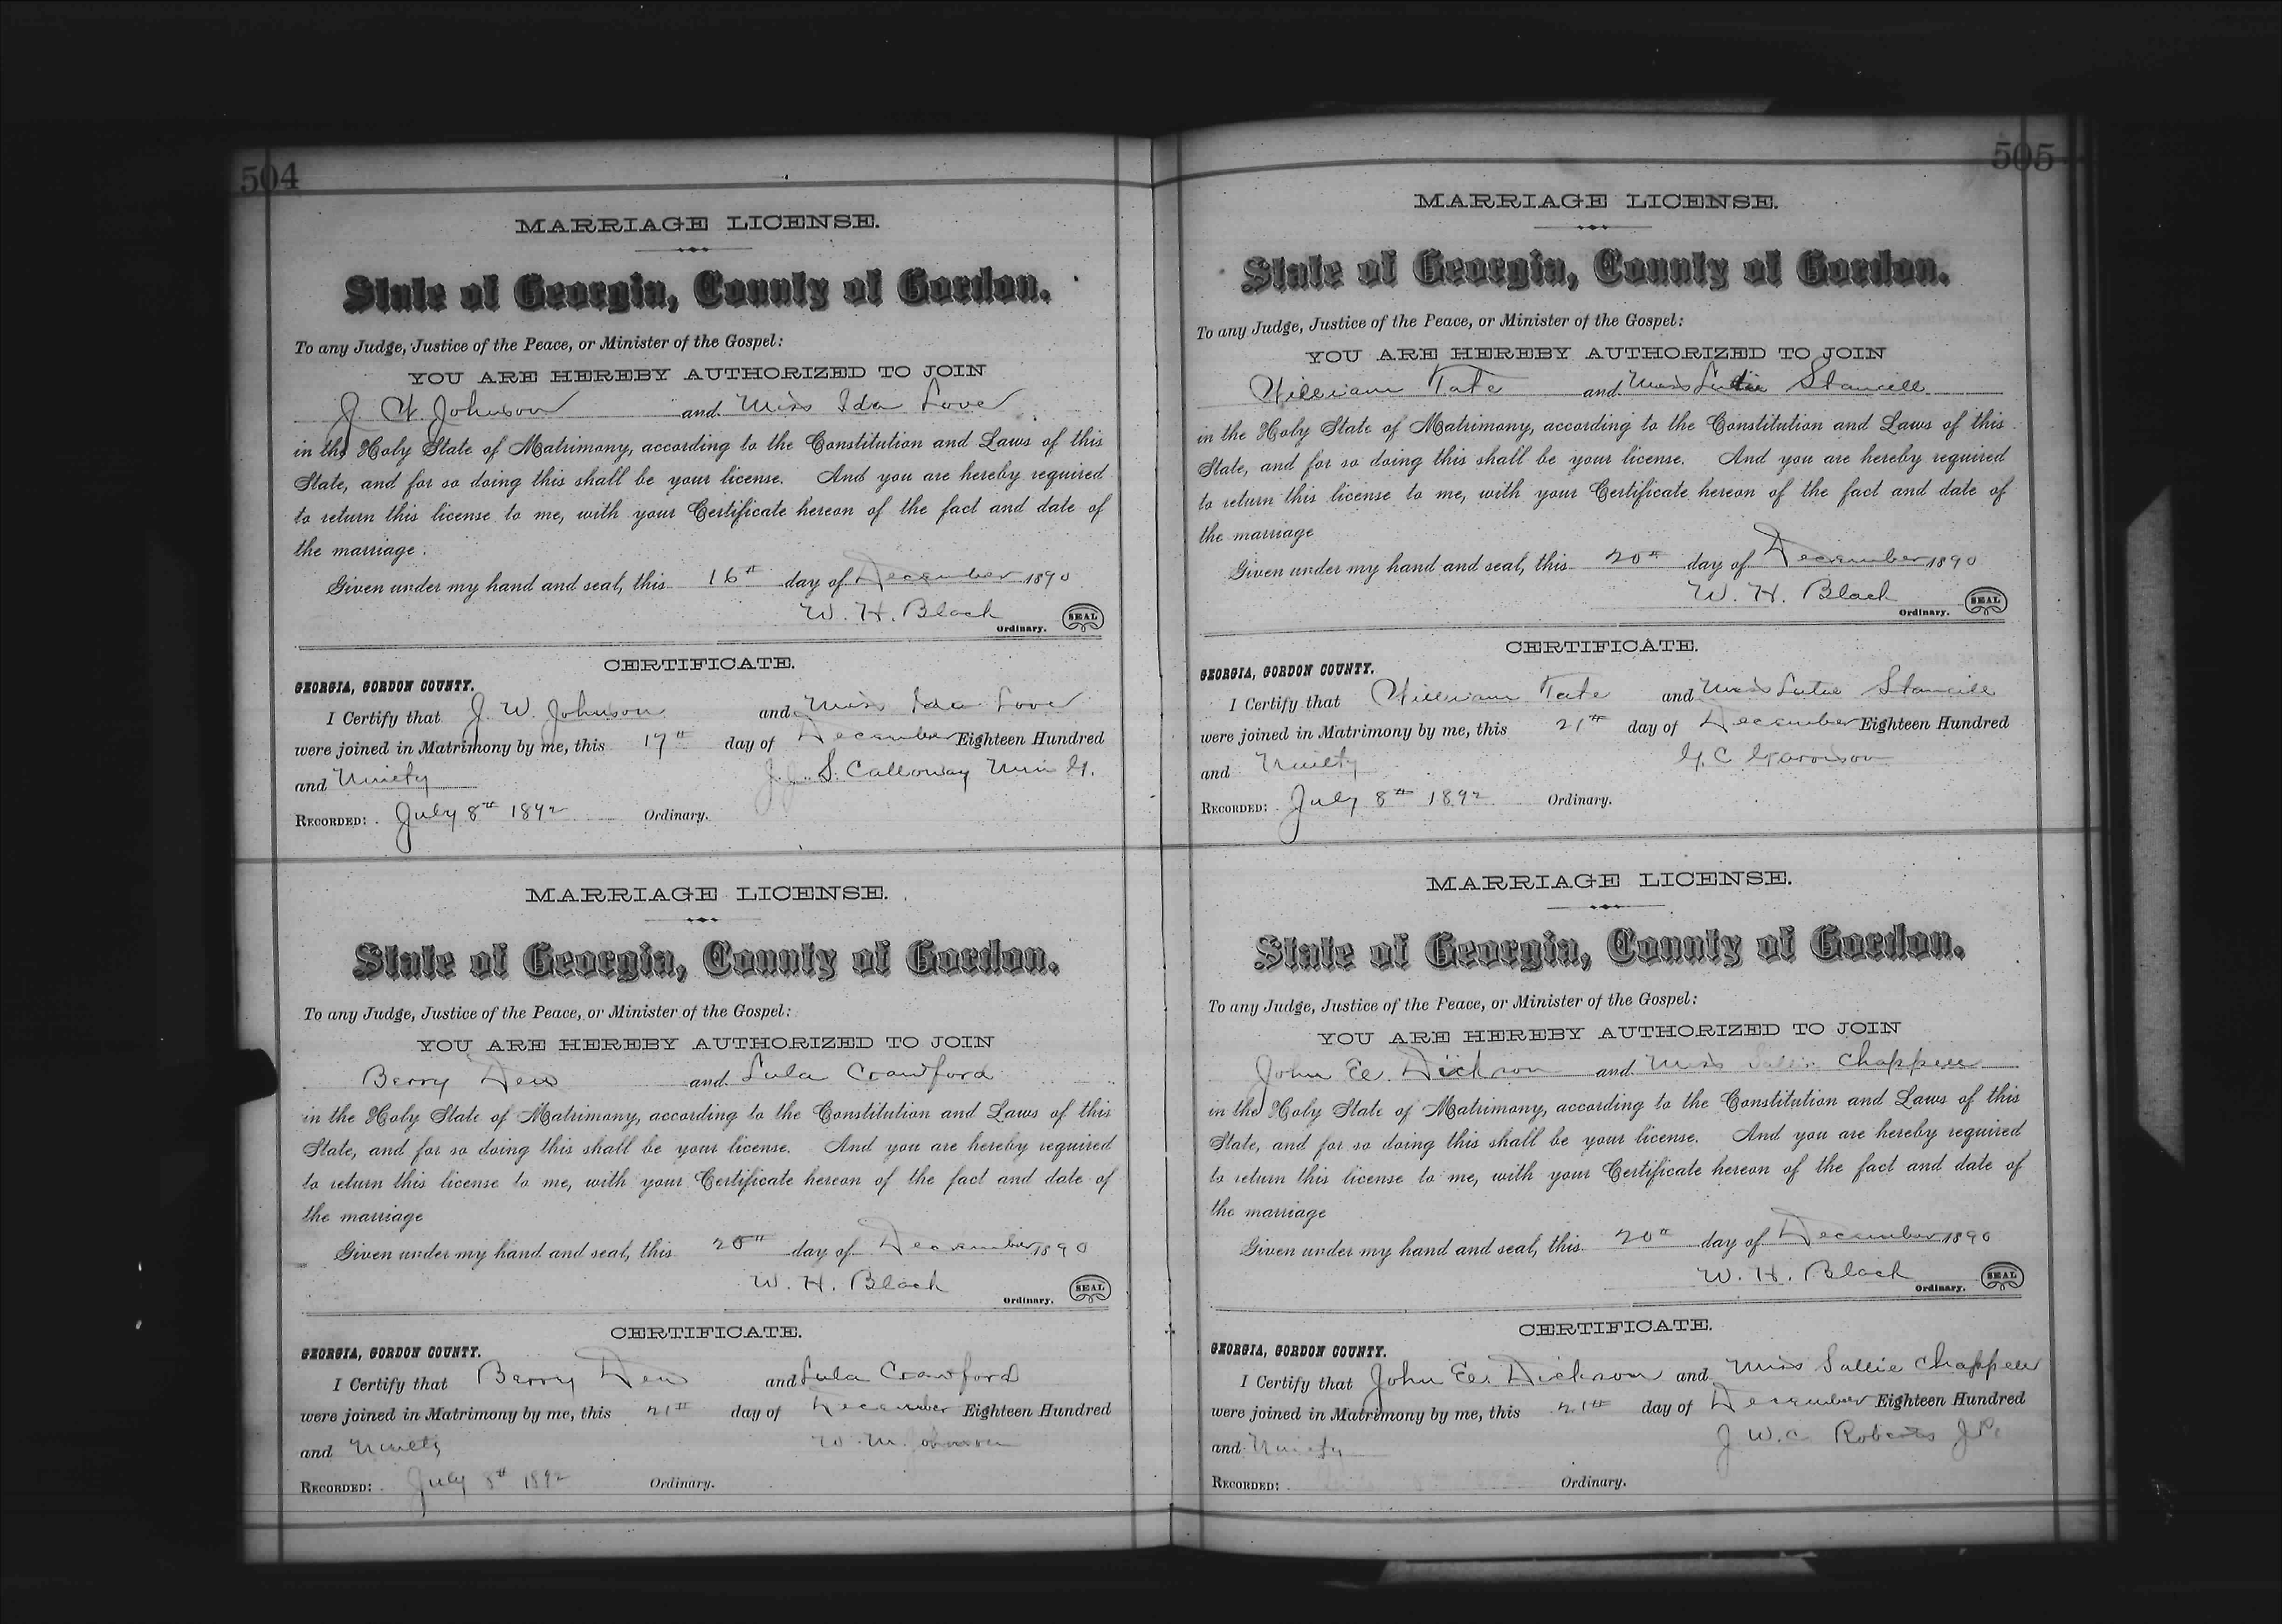 504
MARRIAGE LICENSE.
State of Georgia, County of Gordon.
To any Judge, Justice of the Peace, or Minister of the Gospel:
YOU ARE HEREBY AUTHORIZED TO JOIN
J. W. Johnson and Miss Ida Love
in the Holy State of Matrimony, according to the Constitution and Laws of this
State, and for so doing this shall be your license. And you are hereby required
to return this license to me, with your Certificate hereon of the fact and date of
the marriage.
Given under my hand and seal, this 16th day of December 1890
W. H. Black
Ordinary. SEAL
CERTIFICATE.
GEORGIA, GORDON COUNTY.
I Certify that J. W. Johnson and Miss Ida Love
were joined in Matrimony by me, this 17th day of December Eighteen Hundred
and Ninety J. J. S. Calloway Min G.
RECORDED: July 8th 1892 Ordinary.
MARRIAGE LICENSE.
State of Georgia, County of Gordon.
To any Judge, Justice of the Peace, or Minister of the Gospel:
YOU ARE HEREBY AUTHORIZED TO JOIN
Berry Dew and Lula Crawford
in the Holy State of Matrimony, according to the Constitution and Laws of this
State, and for so doing this shall be your license. And you are hereby required
to return this license to me, with your Certificate hereon of the fact and date of
the marriage
Given under my hand and seal, this 20th day of December 1890
W. H. Black
Ordinary. SEAL
CERTIFICATE.
GEORGIA, GORDON COUNTY.
I Certify that Berry Dew and Lula Crawford
were joined in Matrimony by me, this 21st day of December Eighteen Hundred
and Ninety W. M. Johnson
RECORDED: July 8th 1892 Ordinary.
505
MARRIAGE LICENSE.
State of Georgia, County of Gordon.
To any Judge, Justice of the Peace, or Minister of the Gospel:
YOU ARE HEREBY AUTHORIZED TO JOIN
William Tate and Miss Lutie Stancill
in the Holy State of Matrimony, according to the Constitution and Laws of this
State, and for so doing this shall be your license. And you are hereby required
to return this license to me, with your Certificate hereon of the fact and date of
the marriage
Given under my hand and seal, this 20th day of December 1890
W. H. Black
Ordinary. SEAL
CERTIFICATE.
GEORGIA, GORDON COUNTY.
I Certify that William Tate and Miss Lutie Stancill
were joined in Matrimony by me, this 21th day of December Eighteen Hundred
and Ninety G. C. Garrison
RECORDED: July 8th 1892 Ordinary.
MARRIAGE LICENSE.
State of Georgia, County of Gordon.
To any Judge, Justice of the Peace, or Minister of the Gospel:
YOU ARE HEREBY AUTHORIZED TO JOIN
John E. Dickson and Miss Sallie Chappell
in the Holy State of Matrimony, according to the Constitution and Laws of this
State, and for so doing this shall be your license. And you are hereby required
to return this license to me, with your Certificate hereon of the fact and date of
the marriage
Given under my hand and seal, this 20th day of December 1890
W. H. Black
Ordinary. SEAL
CERTIFICATE.
GEORGIA, GORDON COUNTY.
I Certify that John E. Dickson and Miss Sallie Chappell
were joined in Matrimony by me, this 21th day of December Eighteen Hundred
and Ninety J. W. Roberts J.P.
RECORDED: Ordinary.